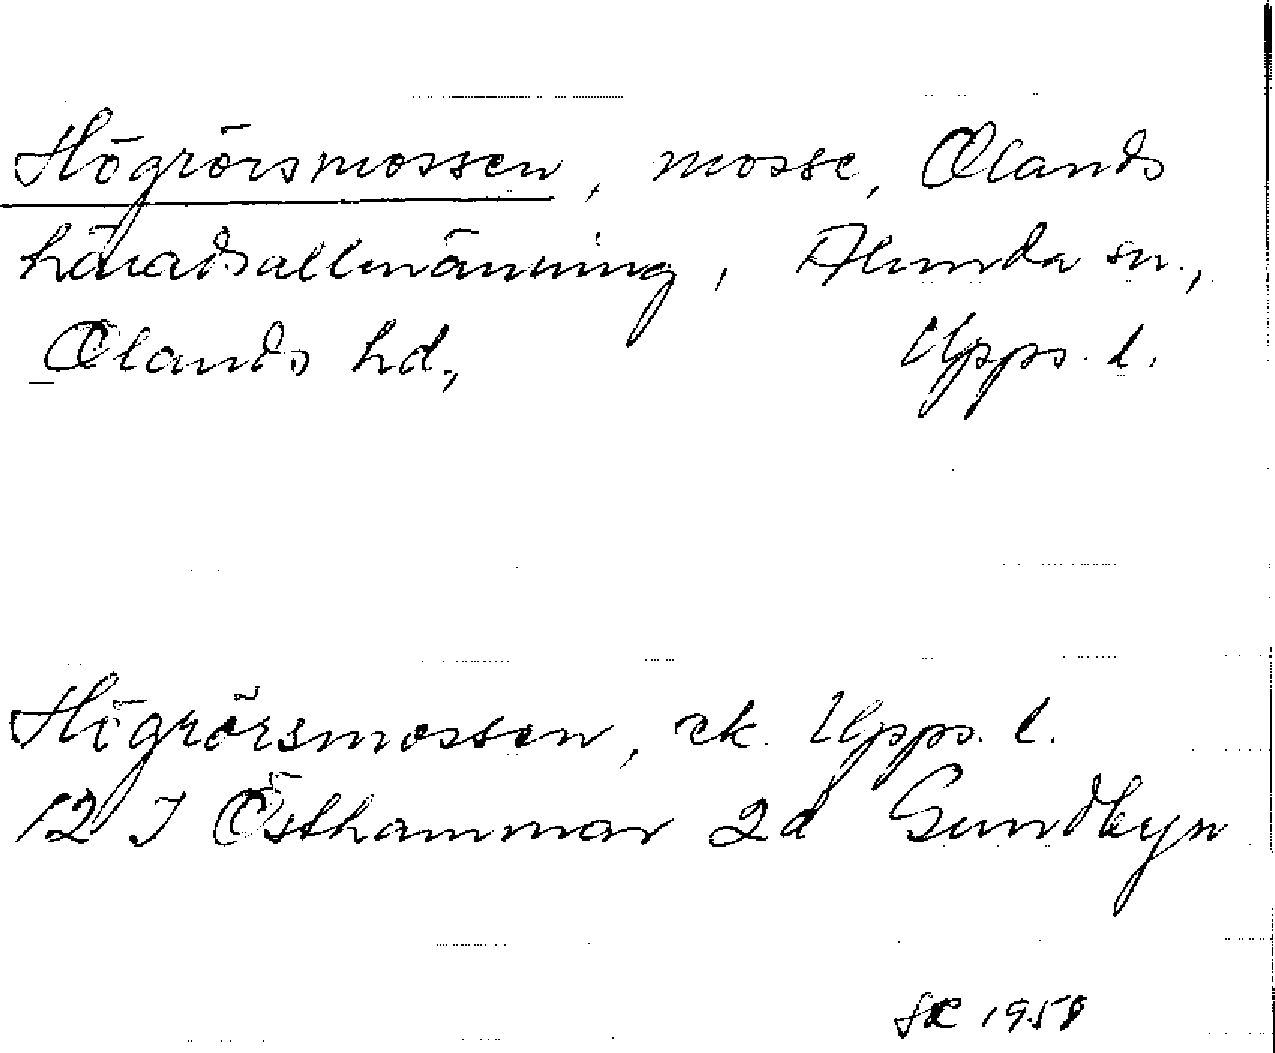 Högrörsmossen, mosse, Olands
häradsallmänning, Alunda sn.,
Olands hd., Upps. l.
Högrörsmossen, ek. Upps. l.
12 I Östhammar 2d Sundbyn
1958